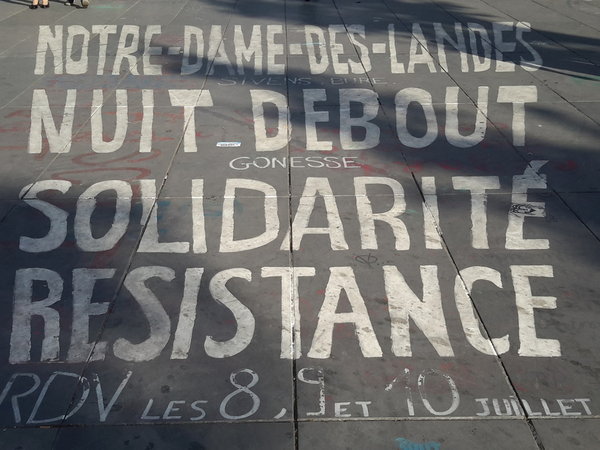 NOTRE-DAME-DES-LANDES
SIVENS BURE
NUIT DEBOUT
GONESSE
SOLIDARITÉ
RESISTANCE
RDV LES 8, 9 ET 10 JUILLET